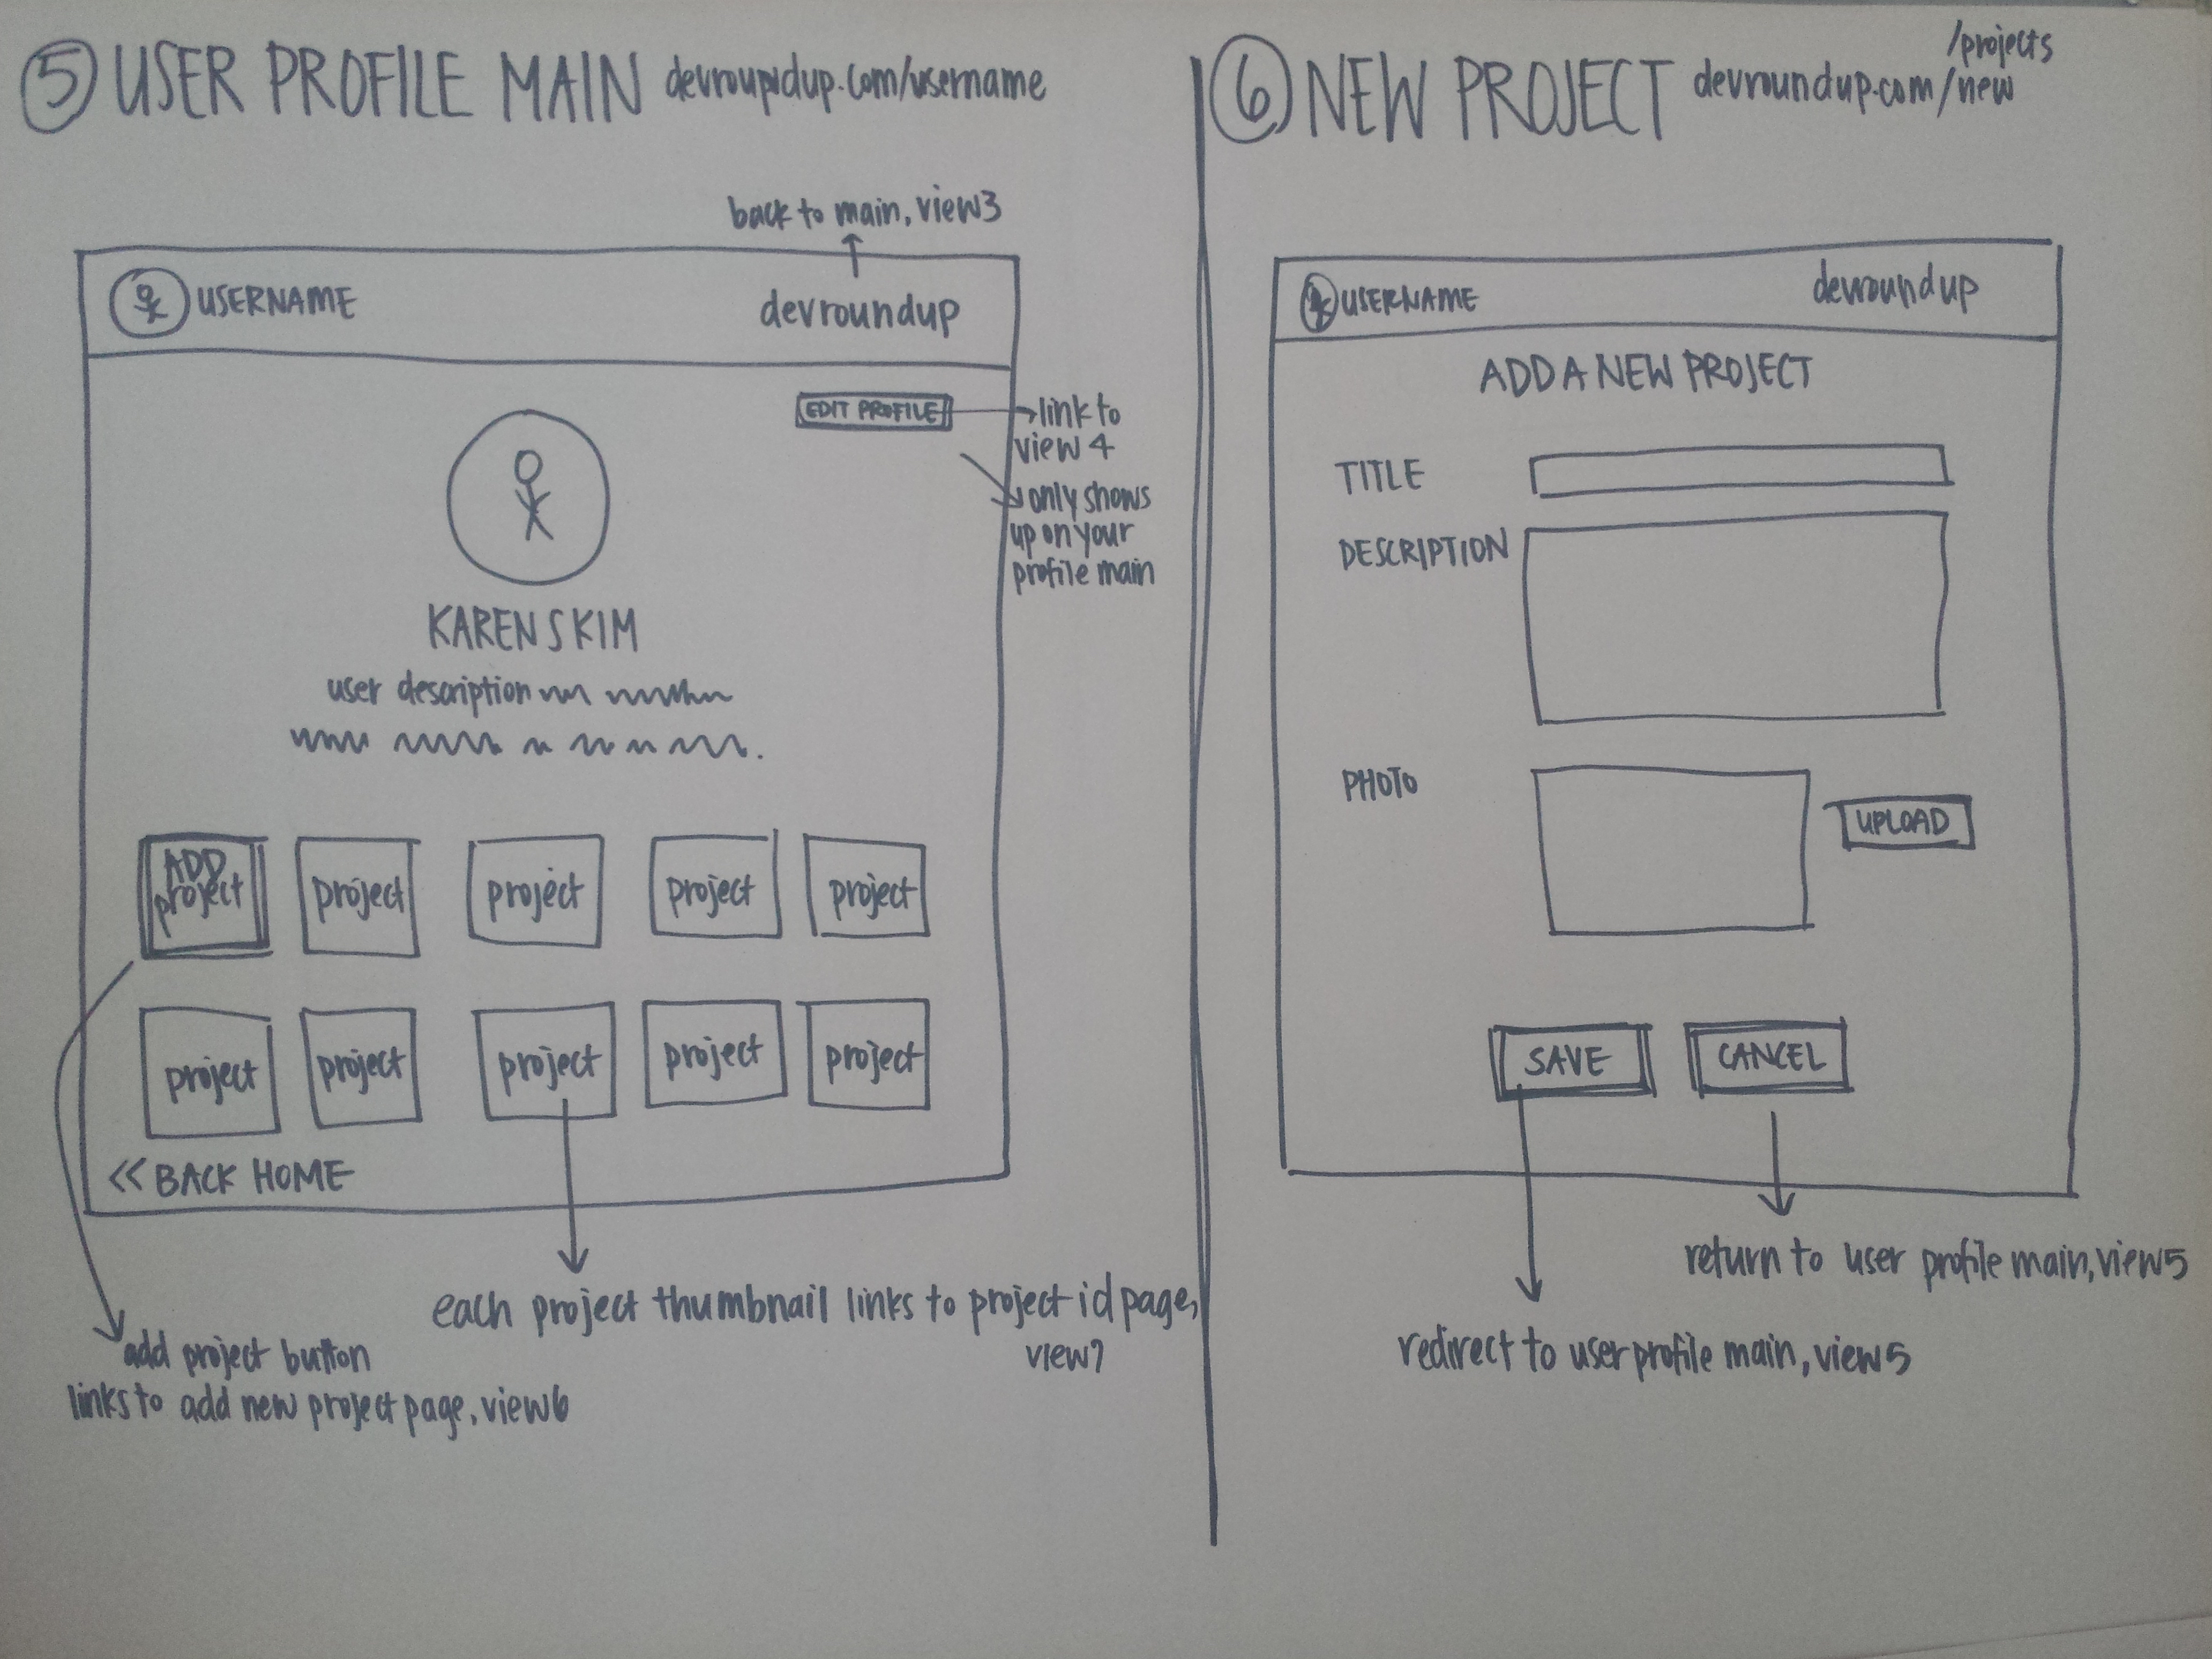 5 USER PROFILE MAIN devroupidup.com/username
back to main, view3
USERNAME
devroundup
EDIT PROFILE
link to
view 4
only shows
up on your
profile main
KAREN S KIM
user description
ADD
project
project
project
project
project
project
project
project
project
project
<< BACK HOME
each project thumbnail links to project id page,
view7
add project button
links to add new project page, view6
6 NEW PROJECT devroundup.com/new
/projects
USERNAME
devroundup
ADD A NEW PROJECT
TITLE
DESCRIPTION
PHOTO
UPLOAD
SAVE
CANCEL
return to user profile main, view5
redirect to user profile main, view5